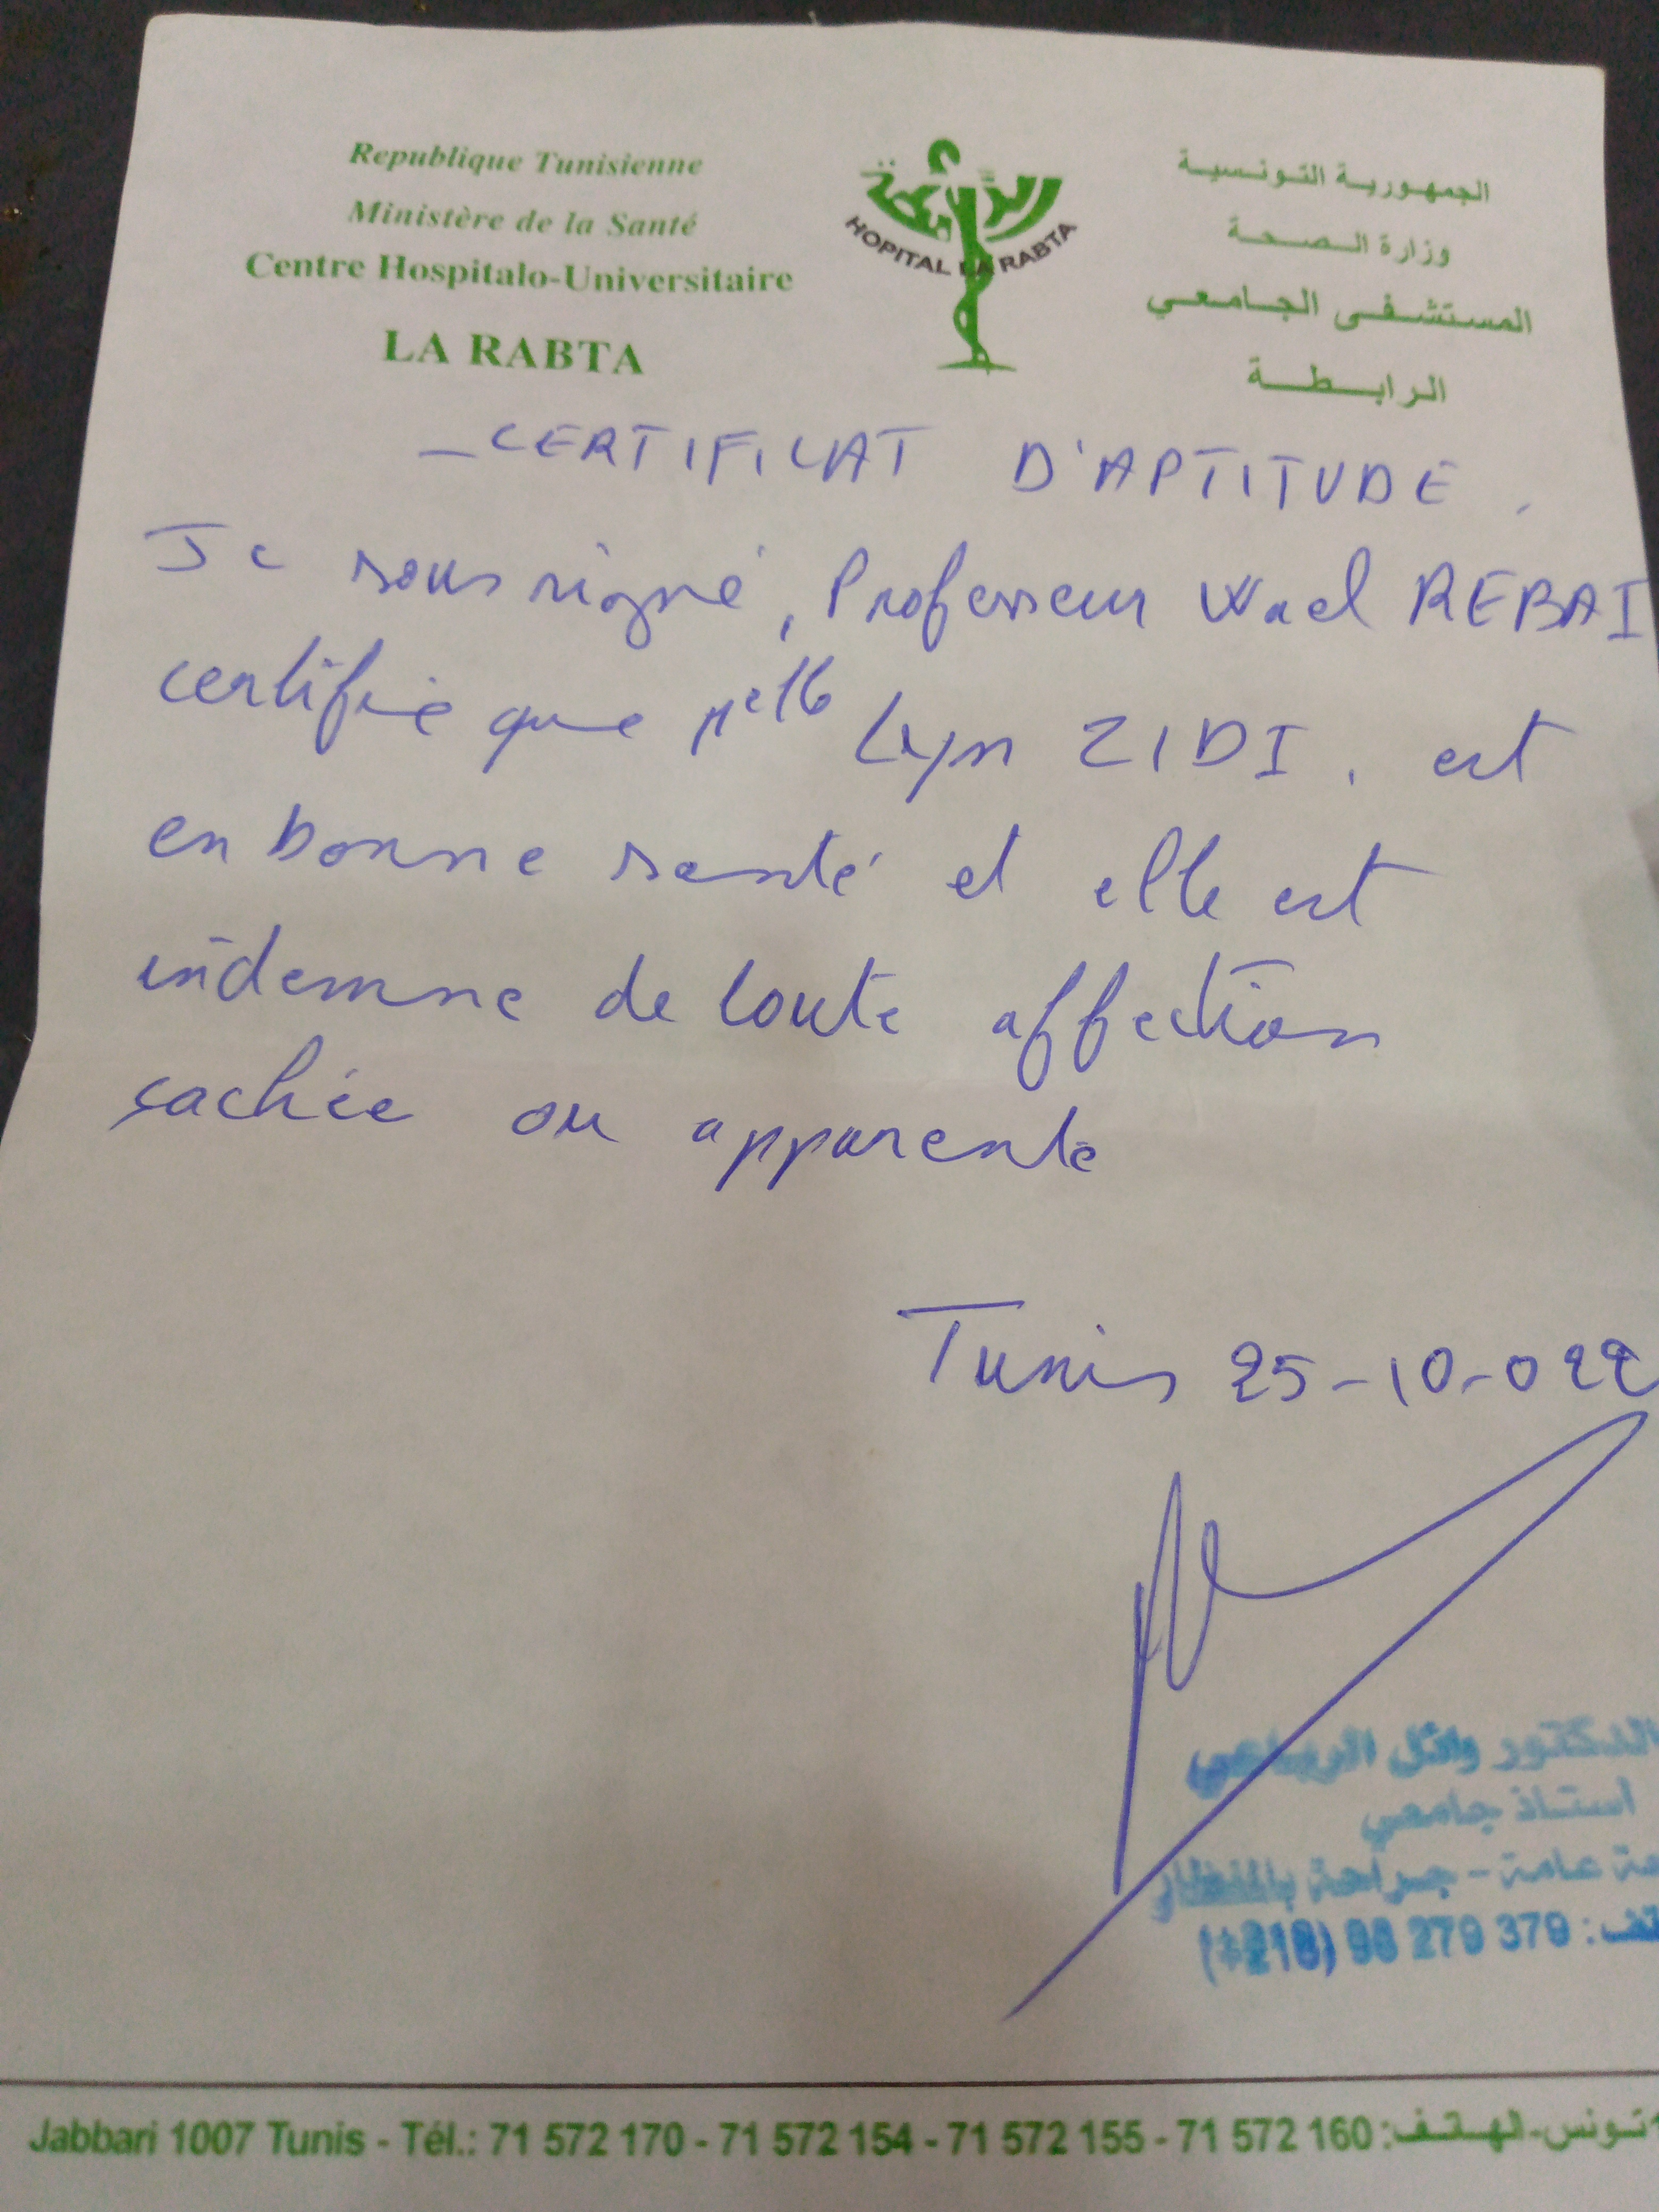 Republique Tunisienne
Ministère de la Santé
Centre Hospitalo-Universitaire
LA RABTA
الرابطة
HOPITAL LA RABTA
الجمهورية التونسية
وزارة الصحة
المستشفى الجامعي
الرابطة
- CERTIFICAT D'APTITUDE.
Je soussigné, Professeur Wael REBAI
certifie que Melle Lyn ZIDI. est
en bonne santé et elle est
indemne de toute affection
cachée ou apparente
Tunis 25-10-022
الدكتور وائل الرباعي
أستاذ جامعي
عامة - جراحة بالمنظار
(+216) 98 279 379 :
Jabbari 1007 Tunis - Tél.: 71 572 170 - 71 572 154 - 71 572 155 - 71 572 160 :تونس-الهاتف